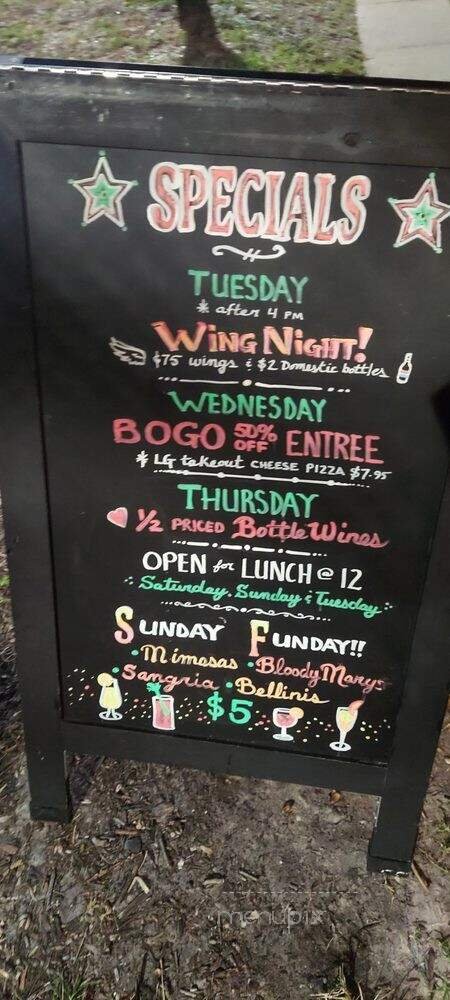 SPECIALS
TUESDAY
* after 4 PM
WING NIGHT!
$75 wings & $2 Domestic bottles
WEDNESDAY
BOGO 50% OFF ENTREE
* LG takeout CHEESE PIZZA $7.95
THURSDAY
1/2 PRICED Bottle Wines
OPEN for LUNCH @ 12
Saturday, Sunday & Tuesday
SUNDAY FUNDAY!!
• Mimosas • Bloody Marys
• Sangria • Bellinis
$5
menupix